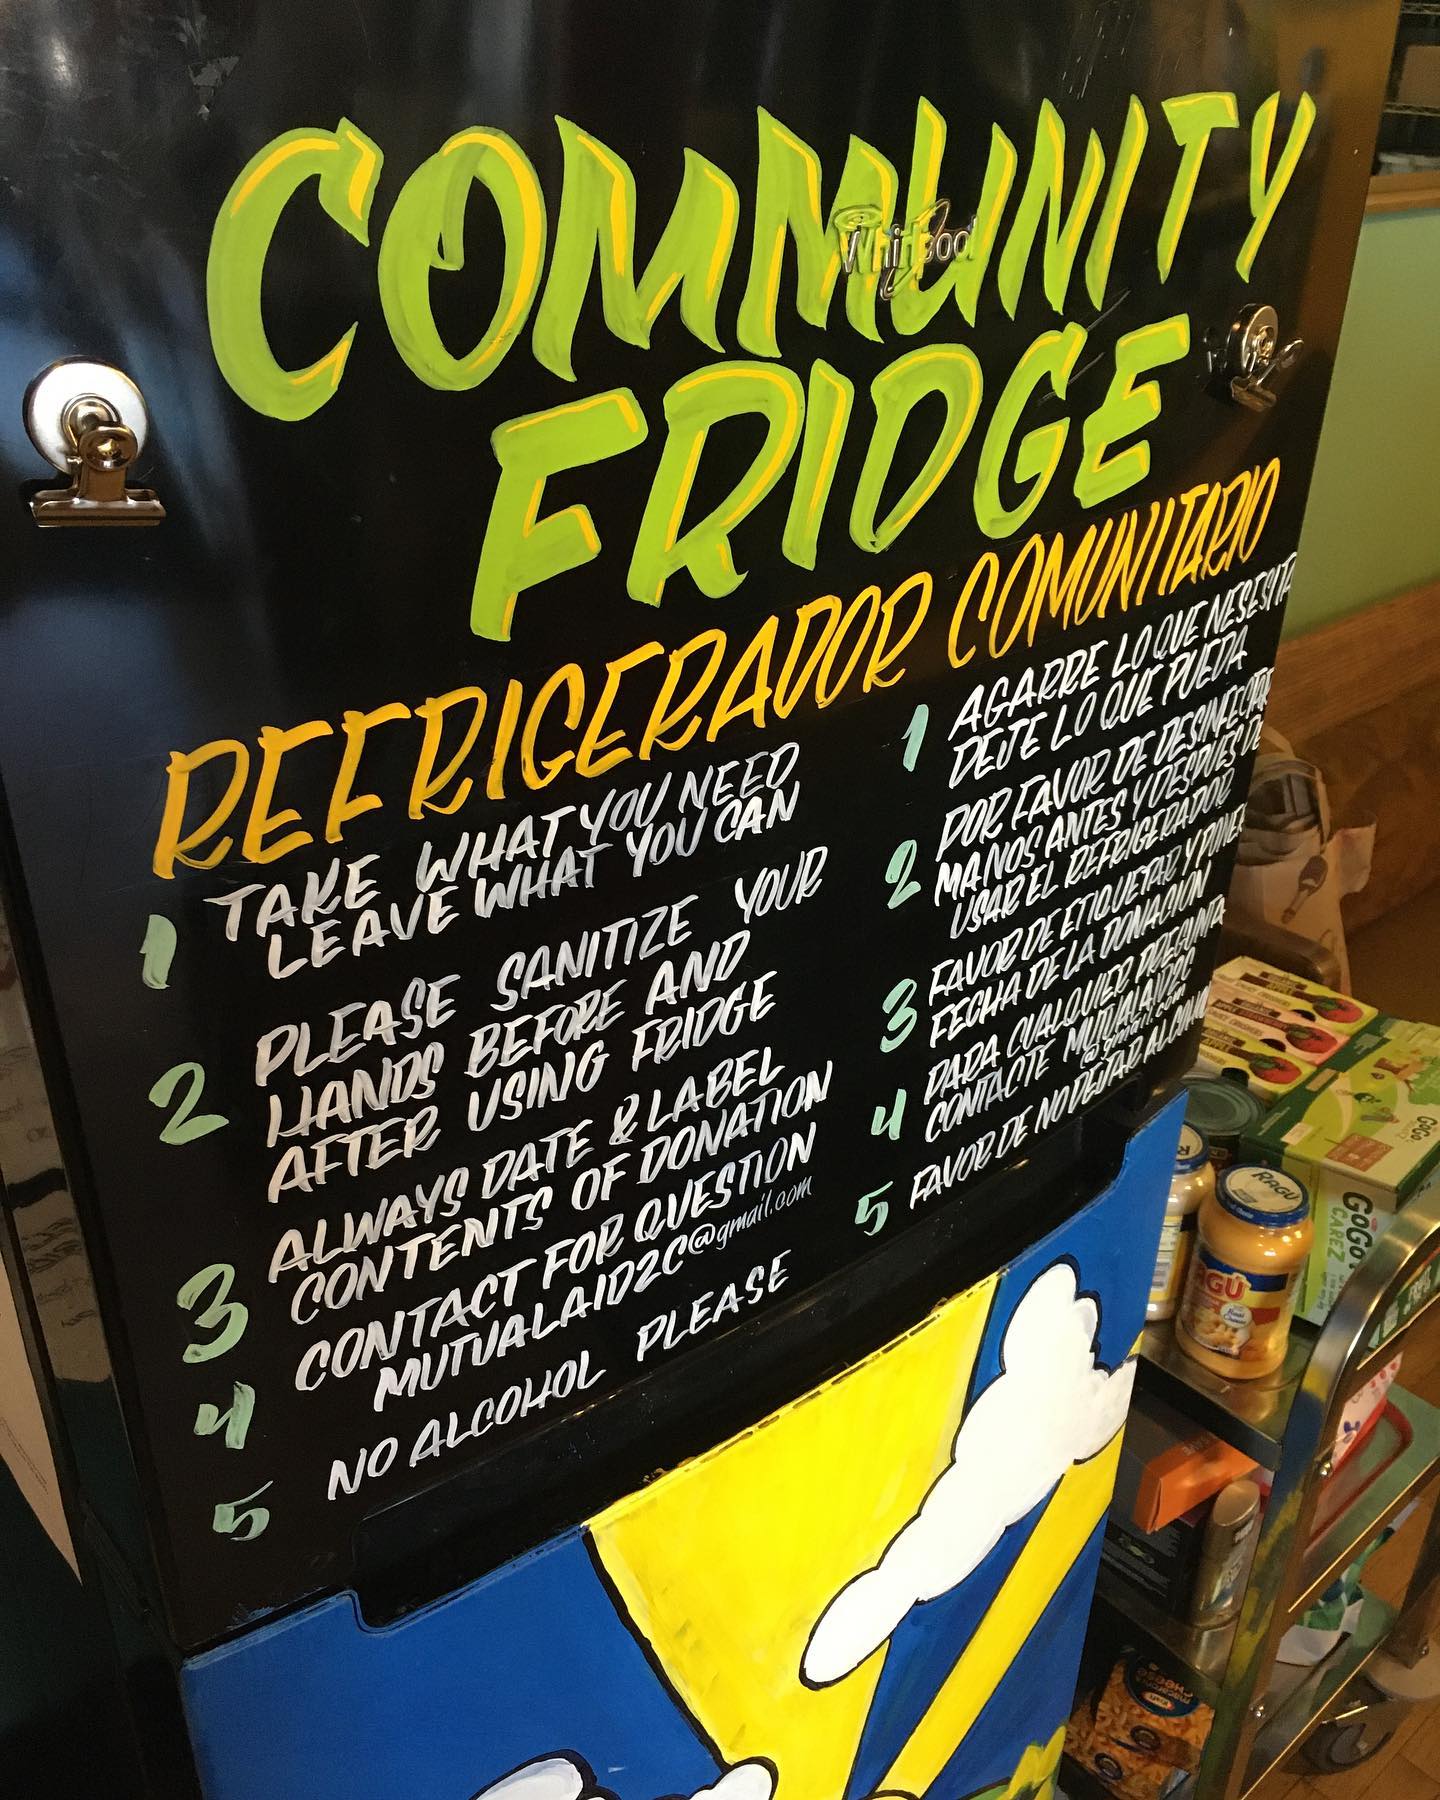 COMMUNITY
Whirlpool
FRIDGE
REFRIGERADOR COMUNITARIO
1 TAKE WHAT YOU NEED
LEAVE WHAT YOU CAN
2 PLEASE SANITIZE YOUR
HANDS BEFORE AND
AFTER USING FRIDGE
3 ALWAYS DATE & LABEL
CONTENTS OF DONATION
4 CONTACT FOR QUESTION
MUTUALAID2C@gmail.com
5 NO ALCOHOL PLEASE
1 AGARRE LO QUE NESESITA
DEJE LO QUE PUEDA
2 POR FAVOR DE DESINFECTAR
MANOS ANTES Y DESPUES DE
USAR EL REFRIGERADOR
3 FAVOR DE ETIQUETAR Y PONER
FECHA DE LA DONACION
4 PARA CUALQUIER PREGUNTA
CONTACTE MUTUALAID2C
@gmail.com
5 FAVOR DE NO DEJAR
RAGÚ
RAGÚ
GOGO
GOGO